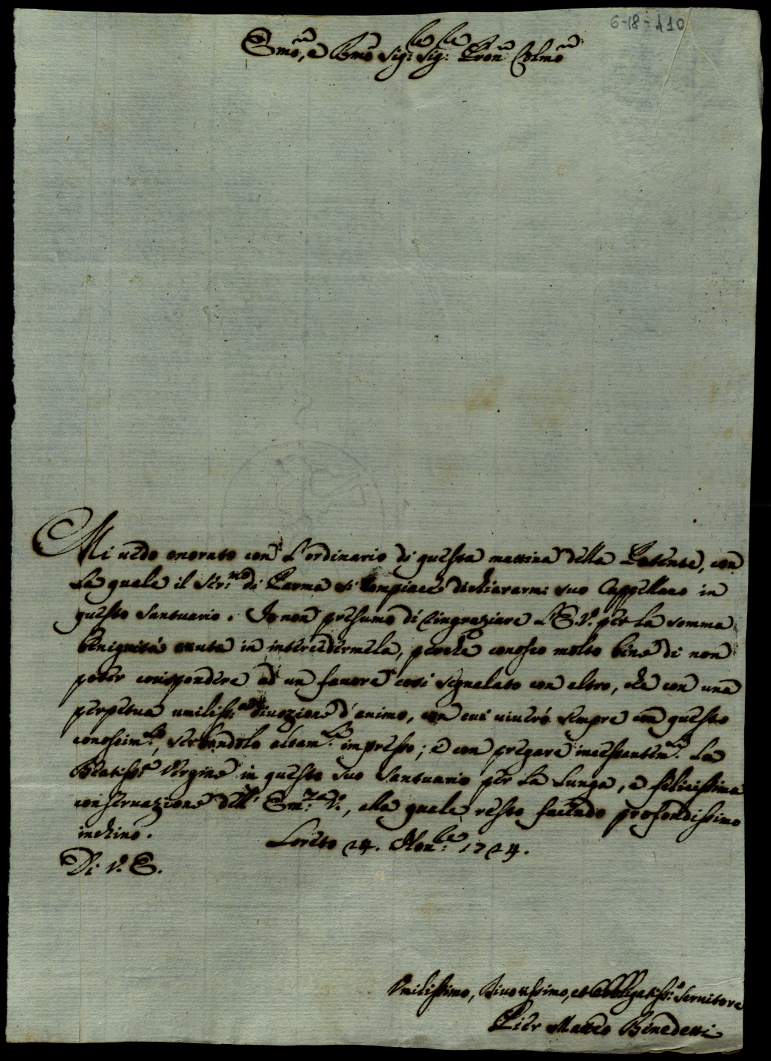 6-18-110
Emo, e Rmo Sig:re Sig:re Pron Colmo
Mi uedo onorato con l'ordinario di questa mattina della Patente, con
la quale il Ser:mo di Parma si compiace dichiararmi suo Cappellano in
questo Santuario. Io non presumo di ringraziare V.E. per la somma
benignità auuta in intercedermela, perche conosco molto bene di non
poter corispondere ad un fauore cosi segnalato con altro, che con una
perpetua umiliss: diuozione d'animo, con cui uiuerò sempre con questo
conoscim:to, serbandolo altam:te impresso; e con pregare incessantem:te la
Beatiss: Vergine in questo suo Santuario per la lunga, e felicissima
conseruazione dell' Em:za V., alla quale resto facendo profondissimo
inchino. Loreto 24. Nou:bre 1724.
Di V. E.
Umilissimo, Diuotissimo, et Obbligatiss:o Seruitore
Pier Matteo Benedetti